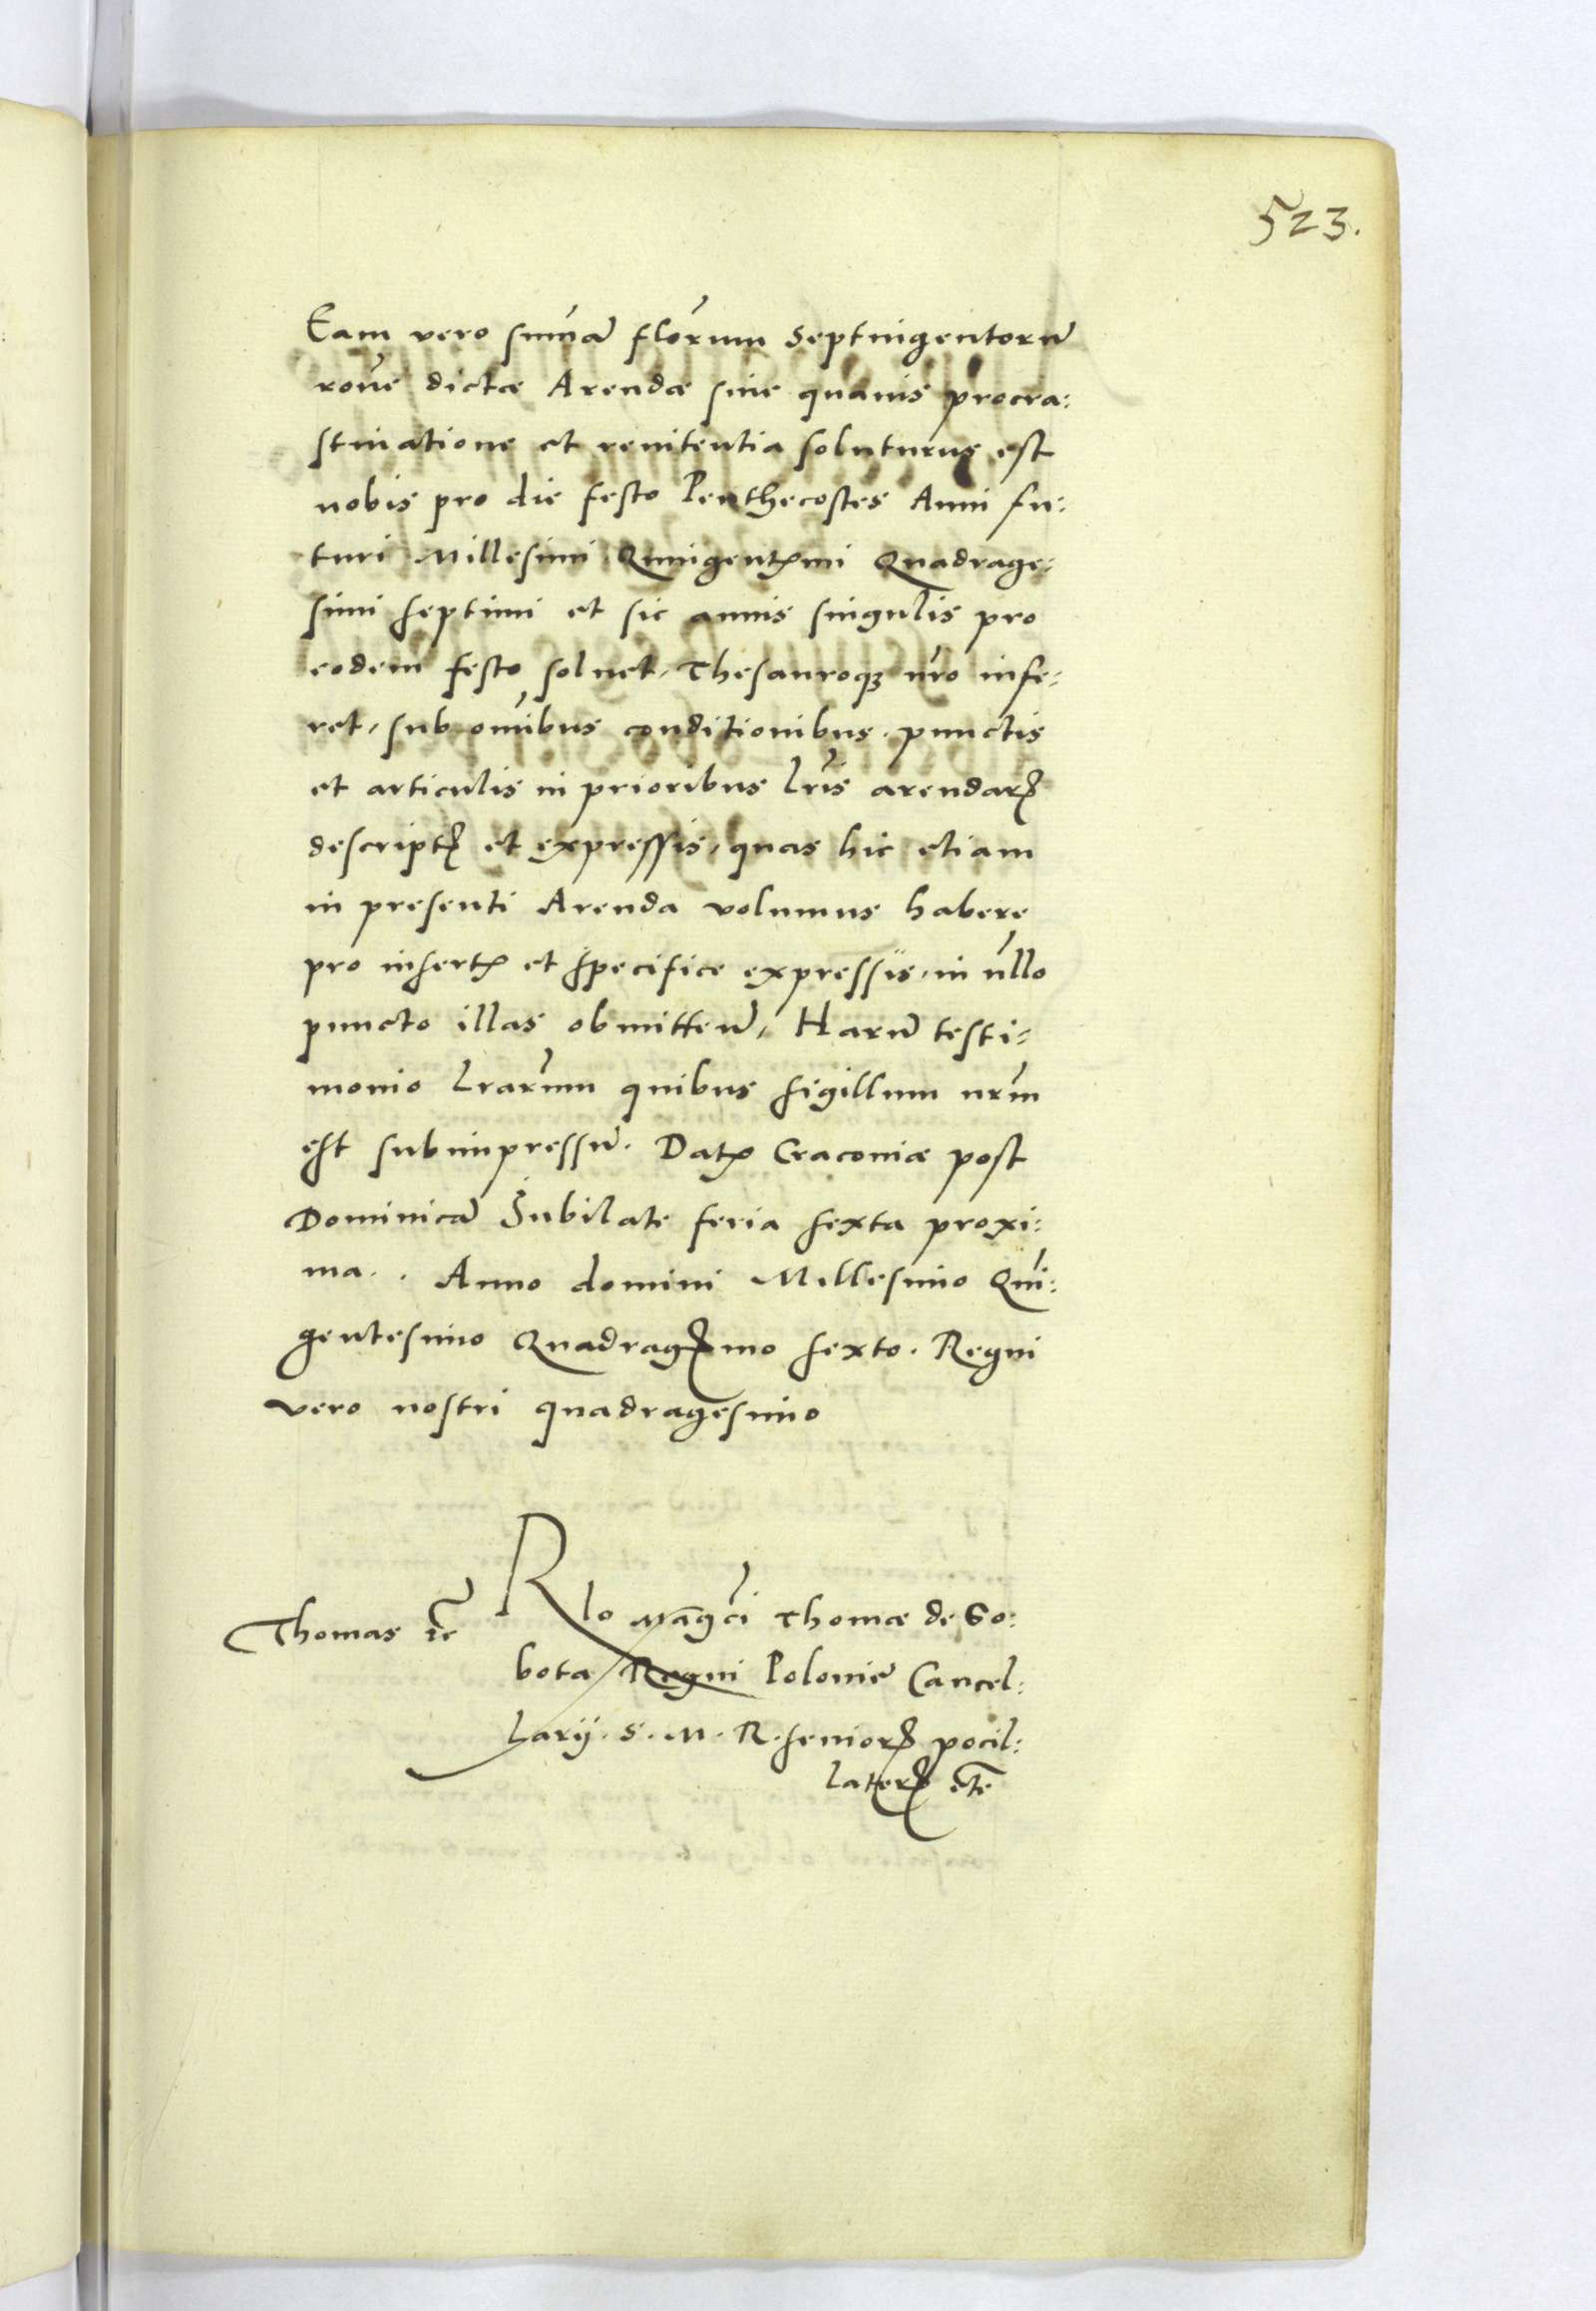 523.
Eam vero sum̃ã flõrum Septingentorũ
rõne dictæ Arendæ sine quavis procra:
stinatione et renitentia soluturus est
nobis pro die festo Penthecostes Anni fu:
turi Millesimi Quingentꝭmi Quadrage:
simi septimi et sic annis singulis pro
eodem festo soluet, Thesauroqꝫ nr̃o infe:
ret, sub om̃ibus conditionibus, punctis
et articulis in prioribus lr̃is arendarꝭ
descriptꝭ et expressis, quas hic etiam
in presenti Arenda volumus habere
pro insertꝭ et specifice expressis, in nl̃lo
puncto illas obmitteñ, Harũ testi:
monio lr̃arum quibus sigillum nr̃m
est subimpressũ. Datꝭ Cracoviæ post
Dominicã Iubilate feria sexta proxi:
ma. . Anno domini Millesimo Qui̅:
gentesimo Quadragꝭmo sexto. Regni
vero nostri quadragesimo
Thomas ꝛc̃
Rlo Mãgci̅ Thomæ de So:
bota Regni Poloniæ Cancel:
larij. S. M. R. seniorꝭ pocil:
latorꝭ etc̃